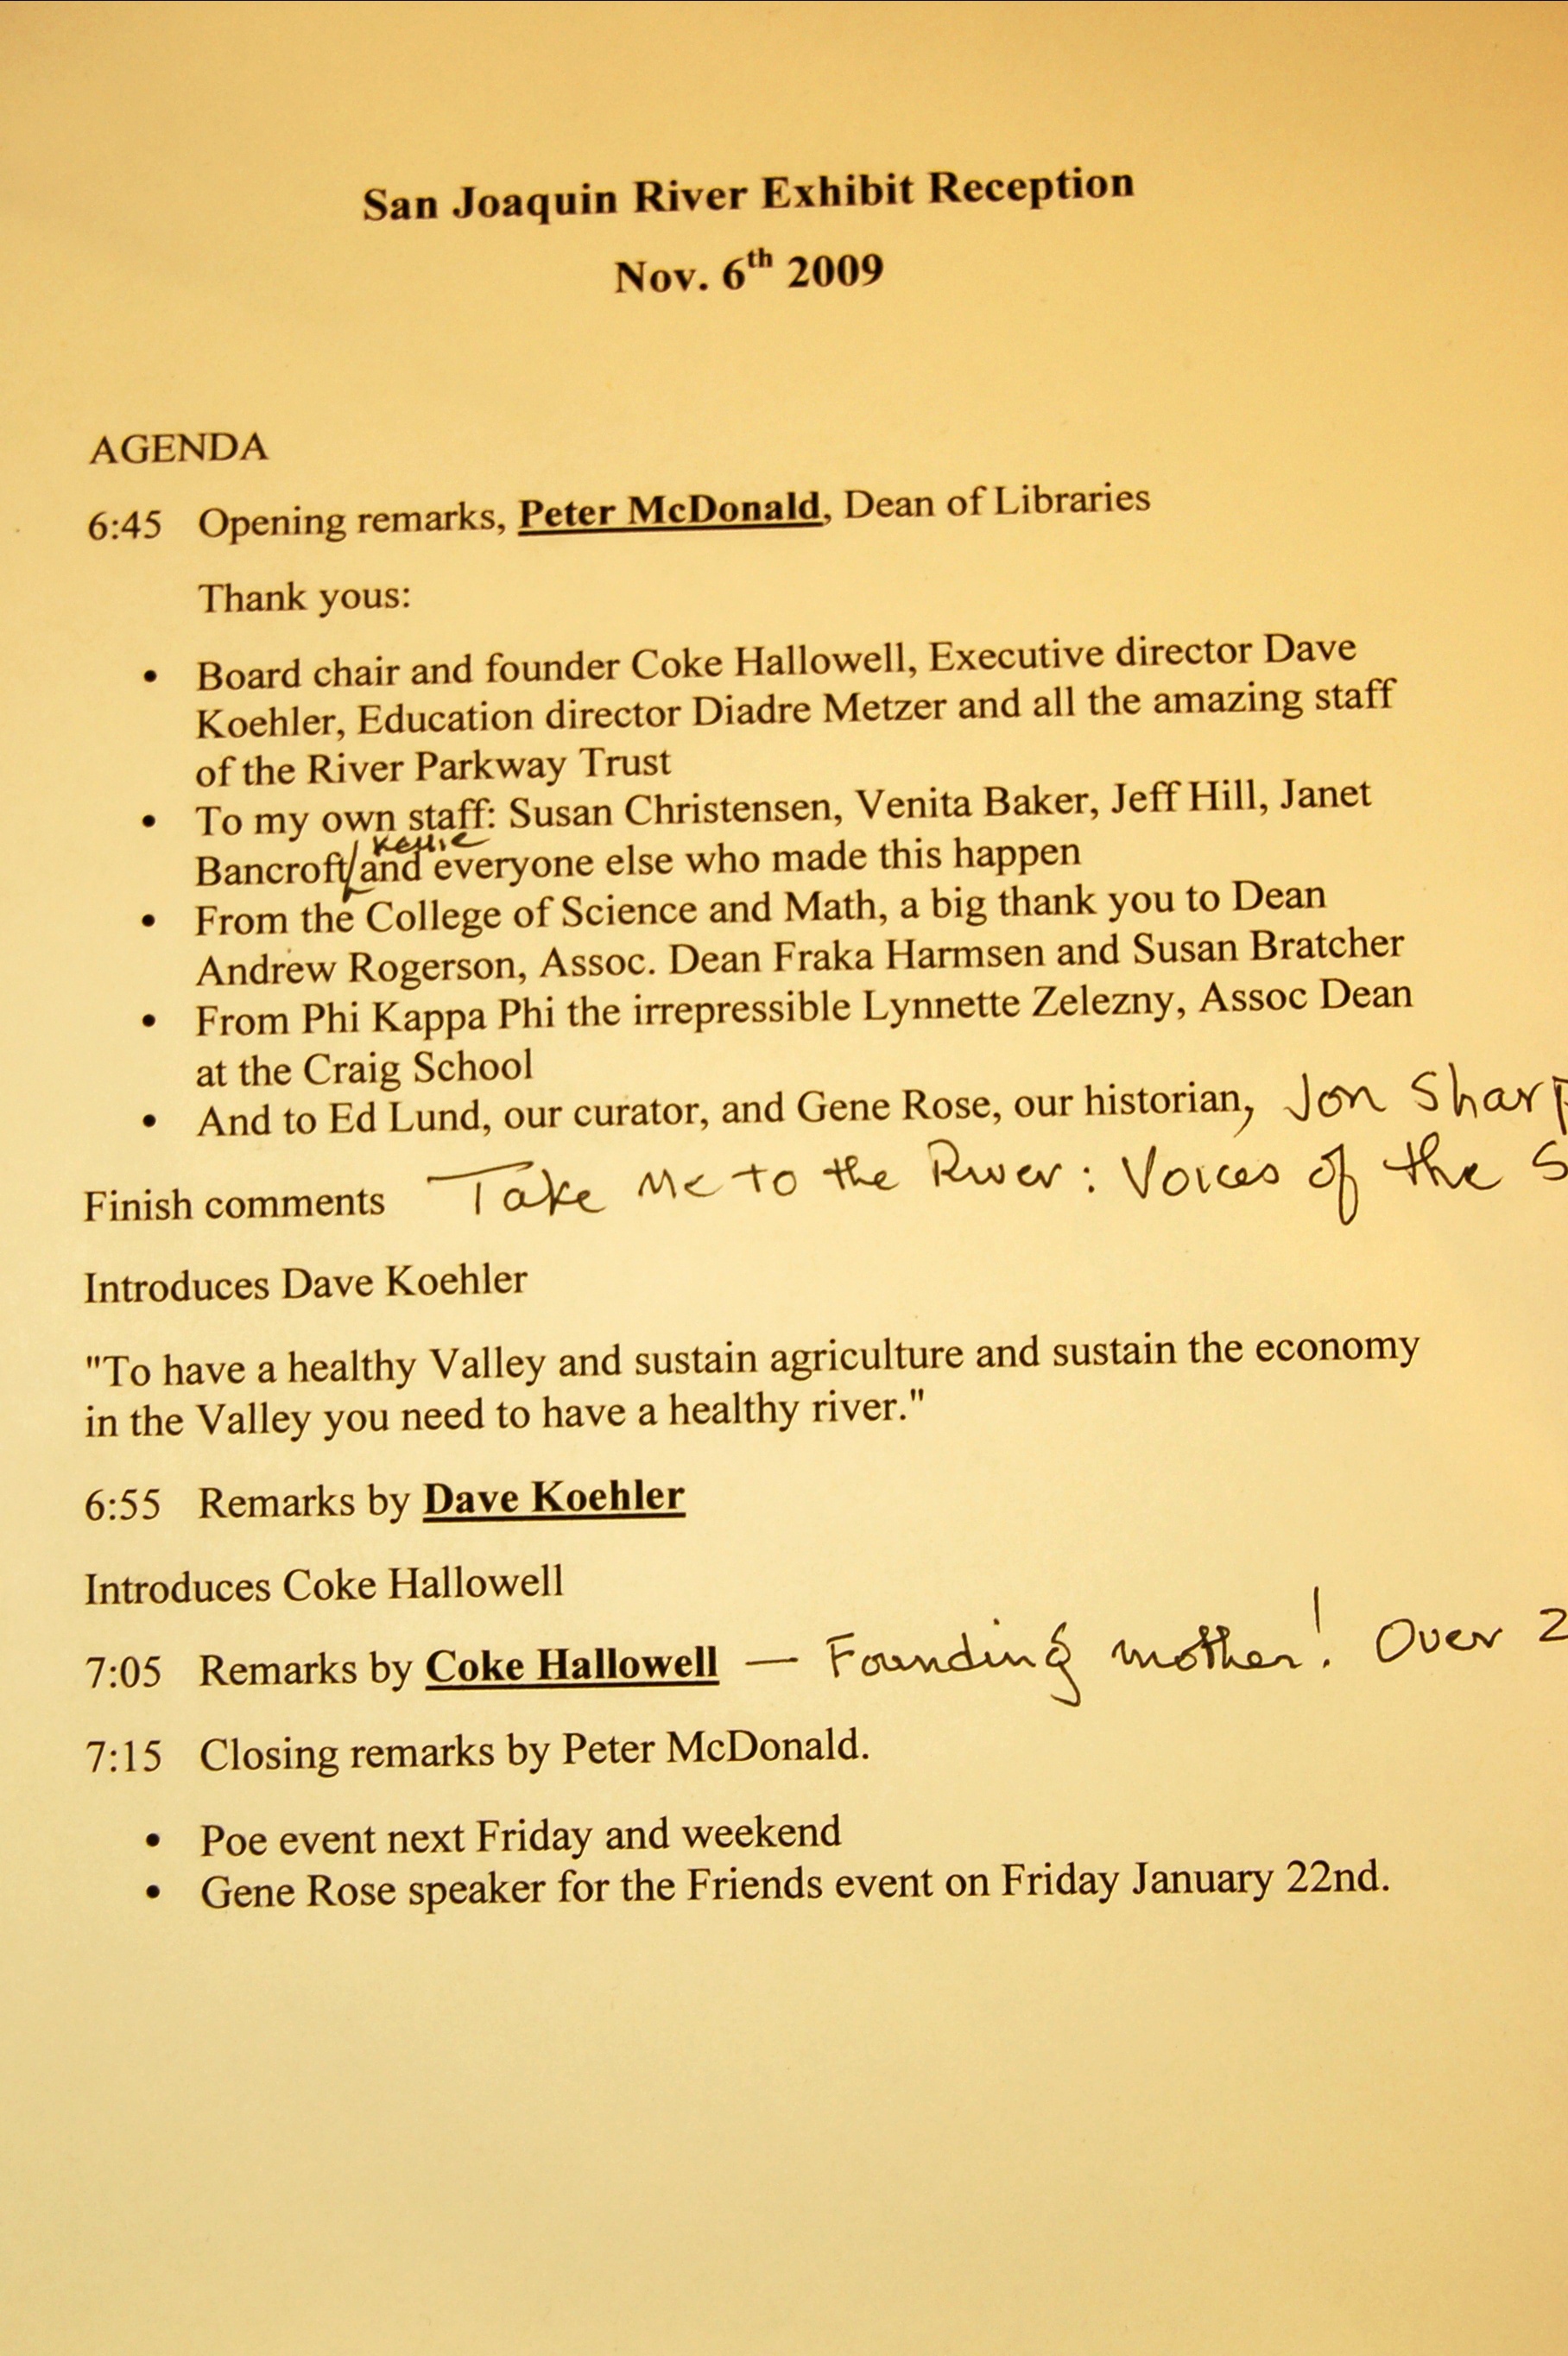 San Joaquin River Exhibit Reception
Nov. 6th 2009
AGENDA
6:45 Opening remarks, Peter McDonald, Dean of Libraries
Thank yous:
• Board chair and founder Coke Hallowell, Executive director Dave
Koehler, Education director Diadre Metzer and all the amazing staff
of the River Parkway Trust
• To my own staff: Susan Christensen, Venita Baker, Jeff Hill, Janet
Kellie
Bancroft/and everyone else who made this happen
• From the College of Science and Math, a big thank you to Dean
Andrew Rogerson, Assoc. Dean Fraka Harmsen and Susan Bratcher
• From Phi Kappa Phi the irrepressible Lynnette Zelezny, Assoc Dean
at the Craig School
• And to Ed Lund, our curator, and Gene Rose, our historian, Jon Sharp
Finish comments Take Me to the River: Voices of the S
Introduces Dave Koehler
"To have a healthy Valley and sustain agriculture and sustain the economy
in the Valley you need to have a healthy river."
6:55 Remarks by Dave Koehler
Introduces Coke Hallowell
7:05 Remarks by Coke Hallowell — Founding mother! Over 2
7:15 Closing remarks by Peter McDonald.
• Poe event next Friday and weekend
• Gene Rose speaker for the Friends event on Friday January 22nd.